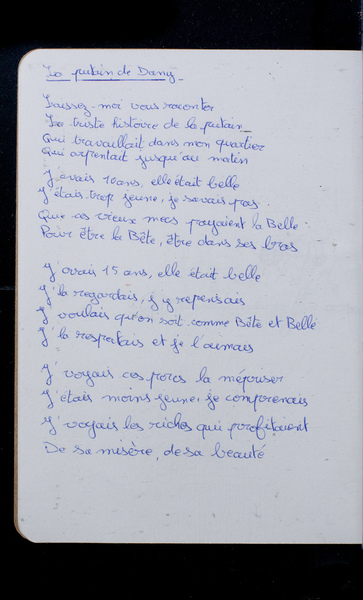 La putain de Dany
Laissez-moi vous raconter
La triste histoire de la putain
Qui travaillait dans mon quartier
Qui arpentait jusqu'au matin
J'avais 10 ans, elle était belle
J'étais trop jeune, je savais pas
Que ces vieux mecs payaient la Belle
Pour être la Bête, être dans ses bras
J'avais 15 ans, elle était belle
J'la regardais, j'y repensais
J'voulais qu'on soit comme Bête et Belle
J'la respectais et je l'aimais
J'voyais ces porcs la mépriser
J'étais moins jeune, je comprenais
J'voyais les riches qui profitaient
De sa misère, de sa beauté